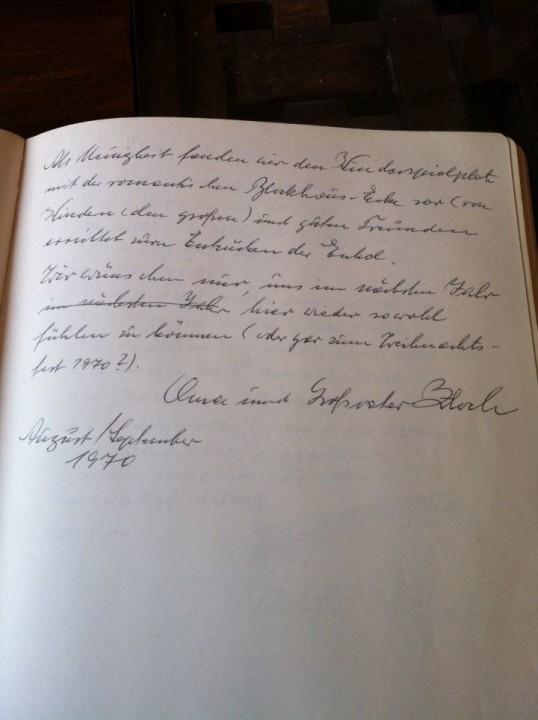 Als Neuigkeit fanden wir den Kinderspielplatz
mit der romantischen Blockhaus-Ecke vor (von
Kindern (den großen) und guten Freunden
erstellt zum Entzücken der Enkel.
Wir wünschen nur, uns im nächsten Jahr
im nächsten Jahr hier wieder so wohl
fühlen zu können (oder gar zum Weihnachts-
fest 1970?).
Oma und Großvater Bloch
August/September
1970